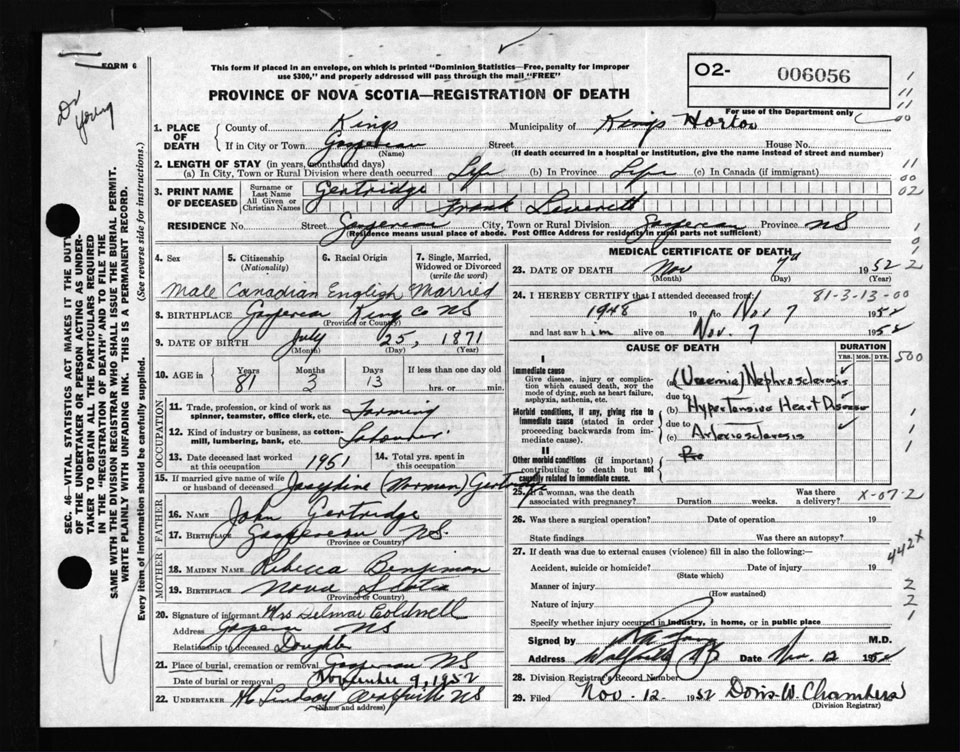 FORM 6
Dr Young
This form if placed in an envelope, on which is printed "Dominion Statistics—Free, penalty for improper
use $300," and properly addressed will pass through the mail "FREE"
O2- 006056
For use of the Department only
PROVINCE OF NOVA SCOTIA—REGISTRATION OF DEATH
1. PLACE OF DEATH
County of Kings Municipality of Kings Horton
If in City or Town Gaspereau (Name) Street House No.
(If death occurred in a hospital or institution, give the name instead of street and number)
2. LENGTH OF STAY (in years, months and days)
(a) In City, Town or Rural Division where death occurred Life (b) In Province Life (c) In Canada (if immigrant)
3. PRINT NAME OF DECEASED
Surname or Last Name Gertridge
All Given or Christian Names Frank Leverett
RESIDENCE No. Street Gaspereau City, Town or Rural Division Gaspereau Province NS
(Residence means usual place of abode. Post Office Address for residents in rural parts not sufficient)
4. Sex
5. Citizenship (Nationality)
6. Racial Origin
7. Single, Married, Widowed or Divorced (write the word)
Male Canadian English Married
8. BIRTHPLACE Gaspereau King Co NS
(Province or Country)
9. DATE OF BIRTH July 25, 1871
(Month) (Day) (Year)
10. AGE in Years Months Days If less than one day old
81 3 13 hrs. or min.
OCCUPATION
11. Trade, profession, or kind of work as spinner, teamster, office clerk, etc. Farming
12. Kind of industry or business, as cotton-mill, lumbering, bank, etc. Labourer
13. Date deceased last worked at this occupation 1951
14. Total yrs. spent in this occupation
15. If married give name of wife or husband of deceased Josephine (Norman) Gertridge
FATHER
16. NAME John Gertridge
17. BIRTHPLACE Gaspereau NS.
(Province or Country)
MOTHER
18. MAIDEN NAME Ribecca Benjiman
19. BIRTHPLACE Nova Scotia
(Province or Country)
20. Signature of informant Mrs Delmar Coldwell
Address Gaspereau NS
Relationship to deceased Doughter
21. Place of burial, cremation or removal Gaspereau NS
Date of burial or removal November 9, 1952
22. UNDERTAKER Lindsay Wolfville NS
(Name and Address)
MEDICAL CERTIFICATE OF DEATH
23. DATE OF DEATH Nov 7th 1952
(Month) (Day)
24. I HEREBY CERTIFY that I attended deceased from: 81-3-13-00
1948 19 to Nov 7 1952
and last saw him alive on Nov. 7 1952
CAUSE OF DEATH
DURATION
YRS. MOS. DYS.
I
Immediate cause
Give disease, injury or complication which caused death, NOT the mode of dying, such as heart failure, asphyxia, asthenia, etc.
(a) (Uraemia) Nephrosclerosis
due to
Morbid conditions, if any, giving rise to immediate cause (stated in order proceeding backwards from immediate cause).
(b) Hypertensive Heart Disease
due to
(c) Arteriosclerosis
II
Other morbid conditions (if important) contributing to death but not causally related to immediate cause.
25. If a woman, was the death associated with pregnancy? Duration weeks. Was there a delivery? X-07-2
26. Was there a surgical operation? Date of operation 19
State findings Was there an autopsy?
27. If death was due to external causes (violence) fill in also the following:—
Accident, suicide or homicide? Date of injury 19
(State which)
Manner of injury
(How sustained)
Nature of injury
Specify whether injury occurred in industry, in home, or in public place
442X
500
Signed by M.D.
Address Wolfville Date Nov. 12 1952
28. Division Registrar's Record Number
29. Filed Nov. 12 1952 Doris W. Chambers
(Division Registrar)
SEC. 46—VITAL STATISTICS ACT MAKES IT THE DUTY
OF THE UNDERTAKER OR PERSON ACTING AS UNDER-
TAKER TO OBTAIN ALL THE PARTICULARS REQUIRED
IN THE "REGISTRATION OF DEATH" AND TO FILE THE
SAME WITH THE DIVISION REGISTRAR WHO SHALL ISSUE THE BURIAL PERMIT.
WRITE PLAINLY WITH UNFADING INK. THIS IS A PERMANENT RECORD.
Every item of Information should be carefully supplied. (See reverse side for instructions.)